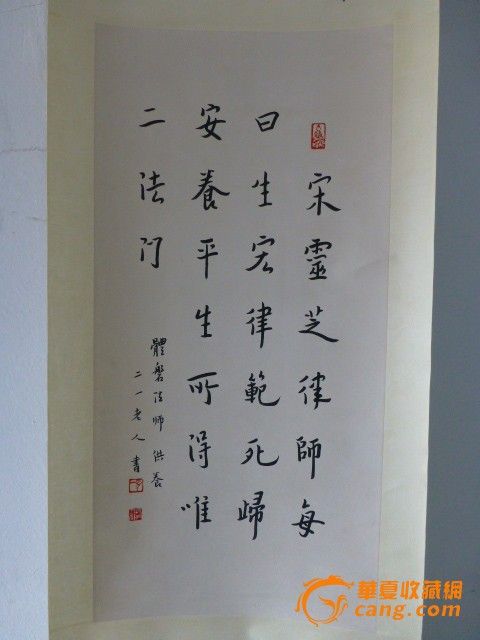 宋靈芝律師每
曰生宏律範死歸
安養平生所得唯
二法門
體磐法師供養
二一老人書
華夏收藏網
cang.com